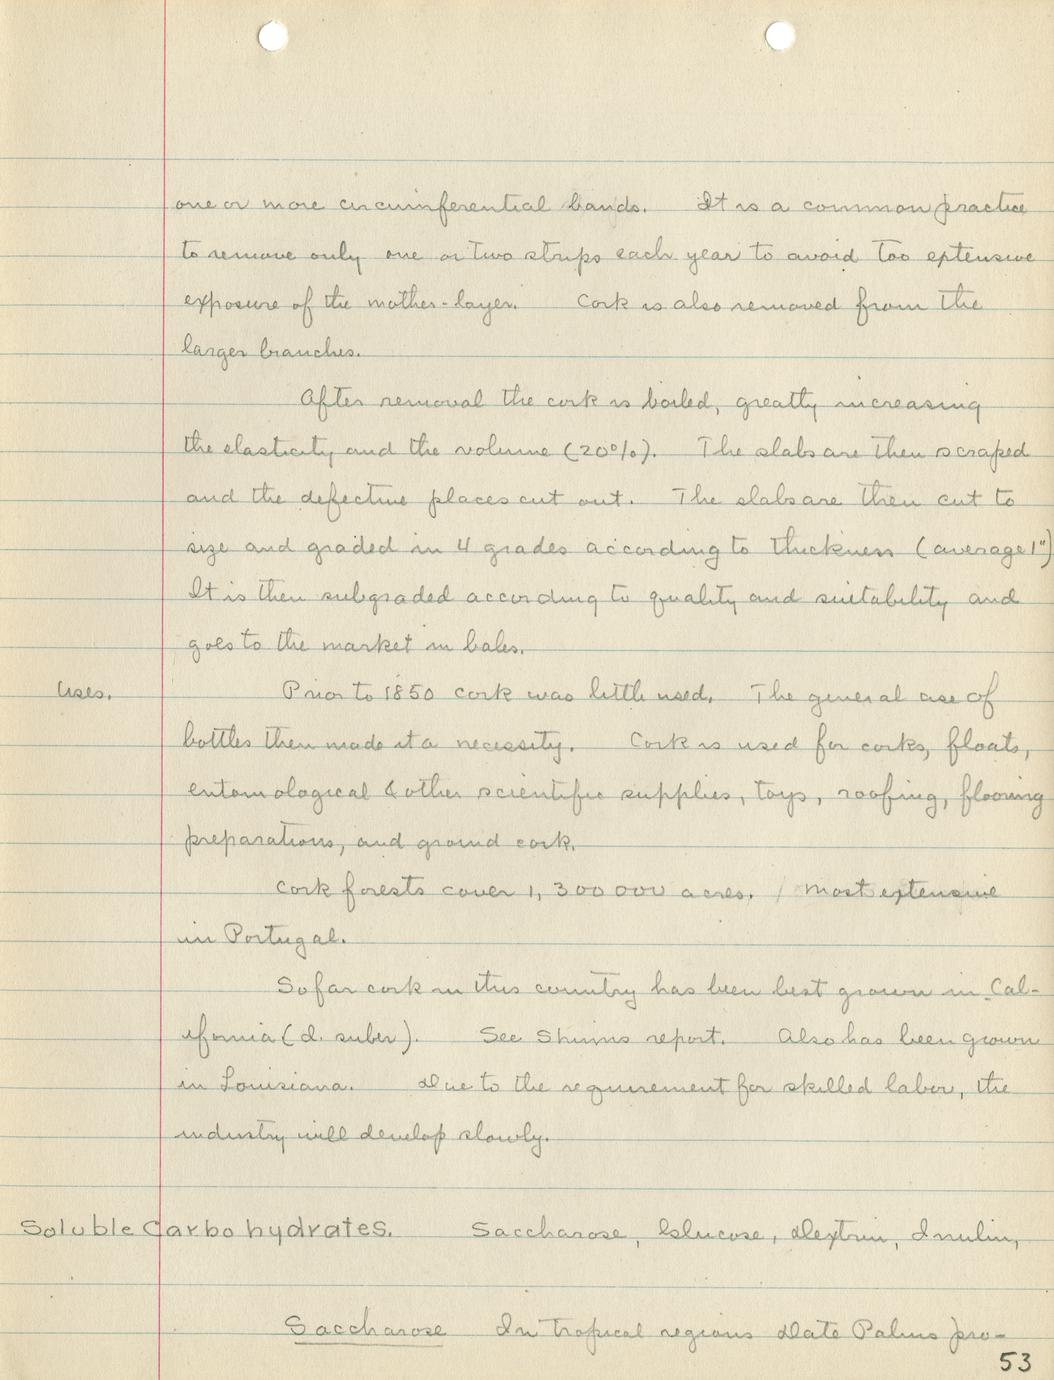 one or more circumferential bands. It is a common practice
to remove only one or two strips each year to avoid too extensive
exposure of the mother-layer. Cork is also removed from the
larger branches.
After removal the cork is boiled, greatly increasing
the elasticity and the volume (20%). The slabs are then scraped
and the defective places cut out. The slabs are then cut to
size and graded in 4 grades according to thickness (average 1")
It is then subgraded according to quality and suitability and
goes to the market in bales.
Uses. Prior to 1850 cork was little used. The general use of
bottles then made it a necessity. Cork is used for corks, floats,
entomological & other scientific supplies, toys, roofing, flooring
preparations, and ground cork.
Cork forests cover 1,300000 acres. / Most extensive
in Portugal.
So far cork in this country has been best grown in Cal-
ifornia (Q. suber). See report. Also has been grown
in Louisiana. Due to the requirement for skilled labor, the
industry will develop slowly.
Soluble Carbohydrates. Saccharose, Glucose, Dextrin, Inulin,
Saccharose In tropical regions Date Palms pro-
53